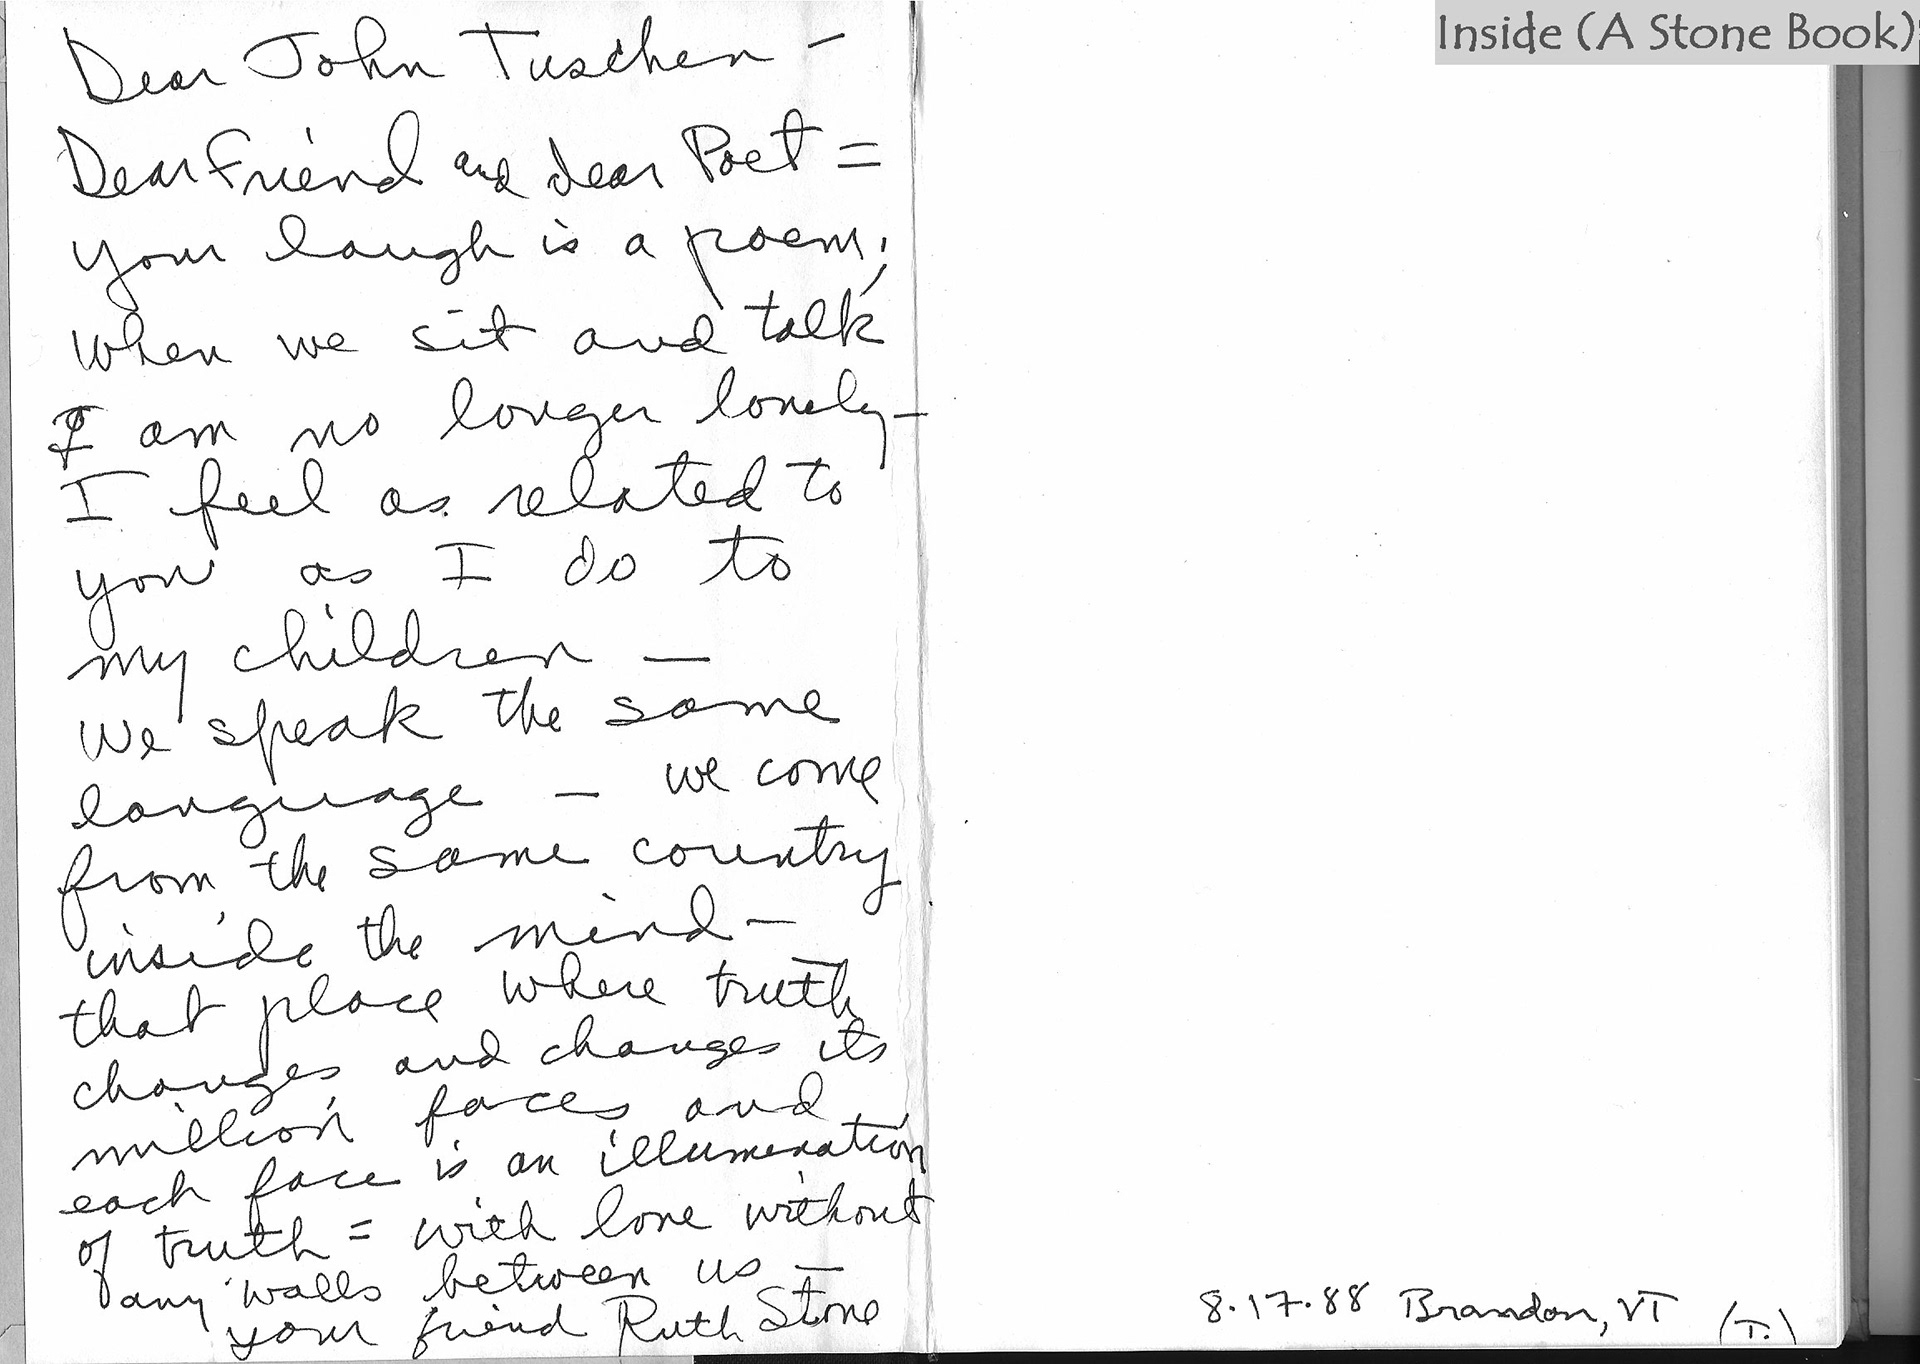 Dear John Tuschen –
Dear Friend and dear Poet =
your laugh is a poem;
when we sit and talk
I am no longer lonely –
I feel as related to
you as I do to
my children —
we speak the same
language — we come
from the same country
inside the mind —
that place where truth
changes and changes its
million faces and
each face is an illumination
of truth = with love without
any walls between us —
your friend Ruth Stone
Inside (A Stone Book)
8.17.88 Brandon, VT (T.)